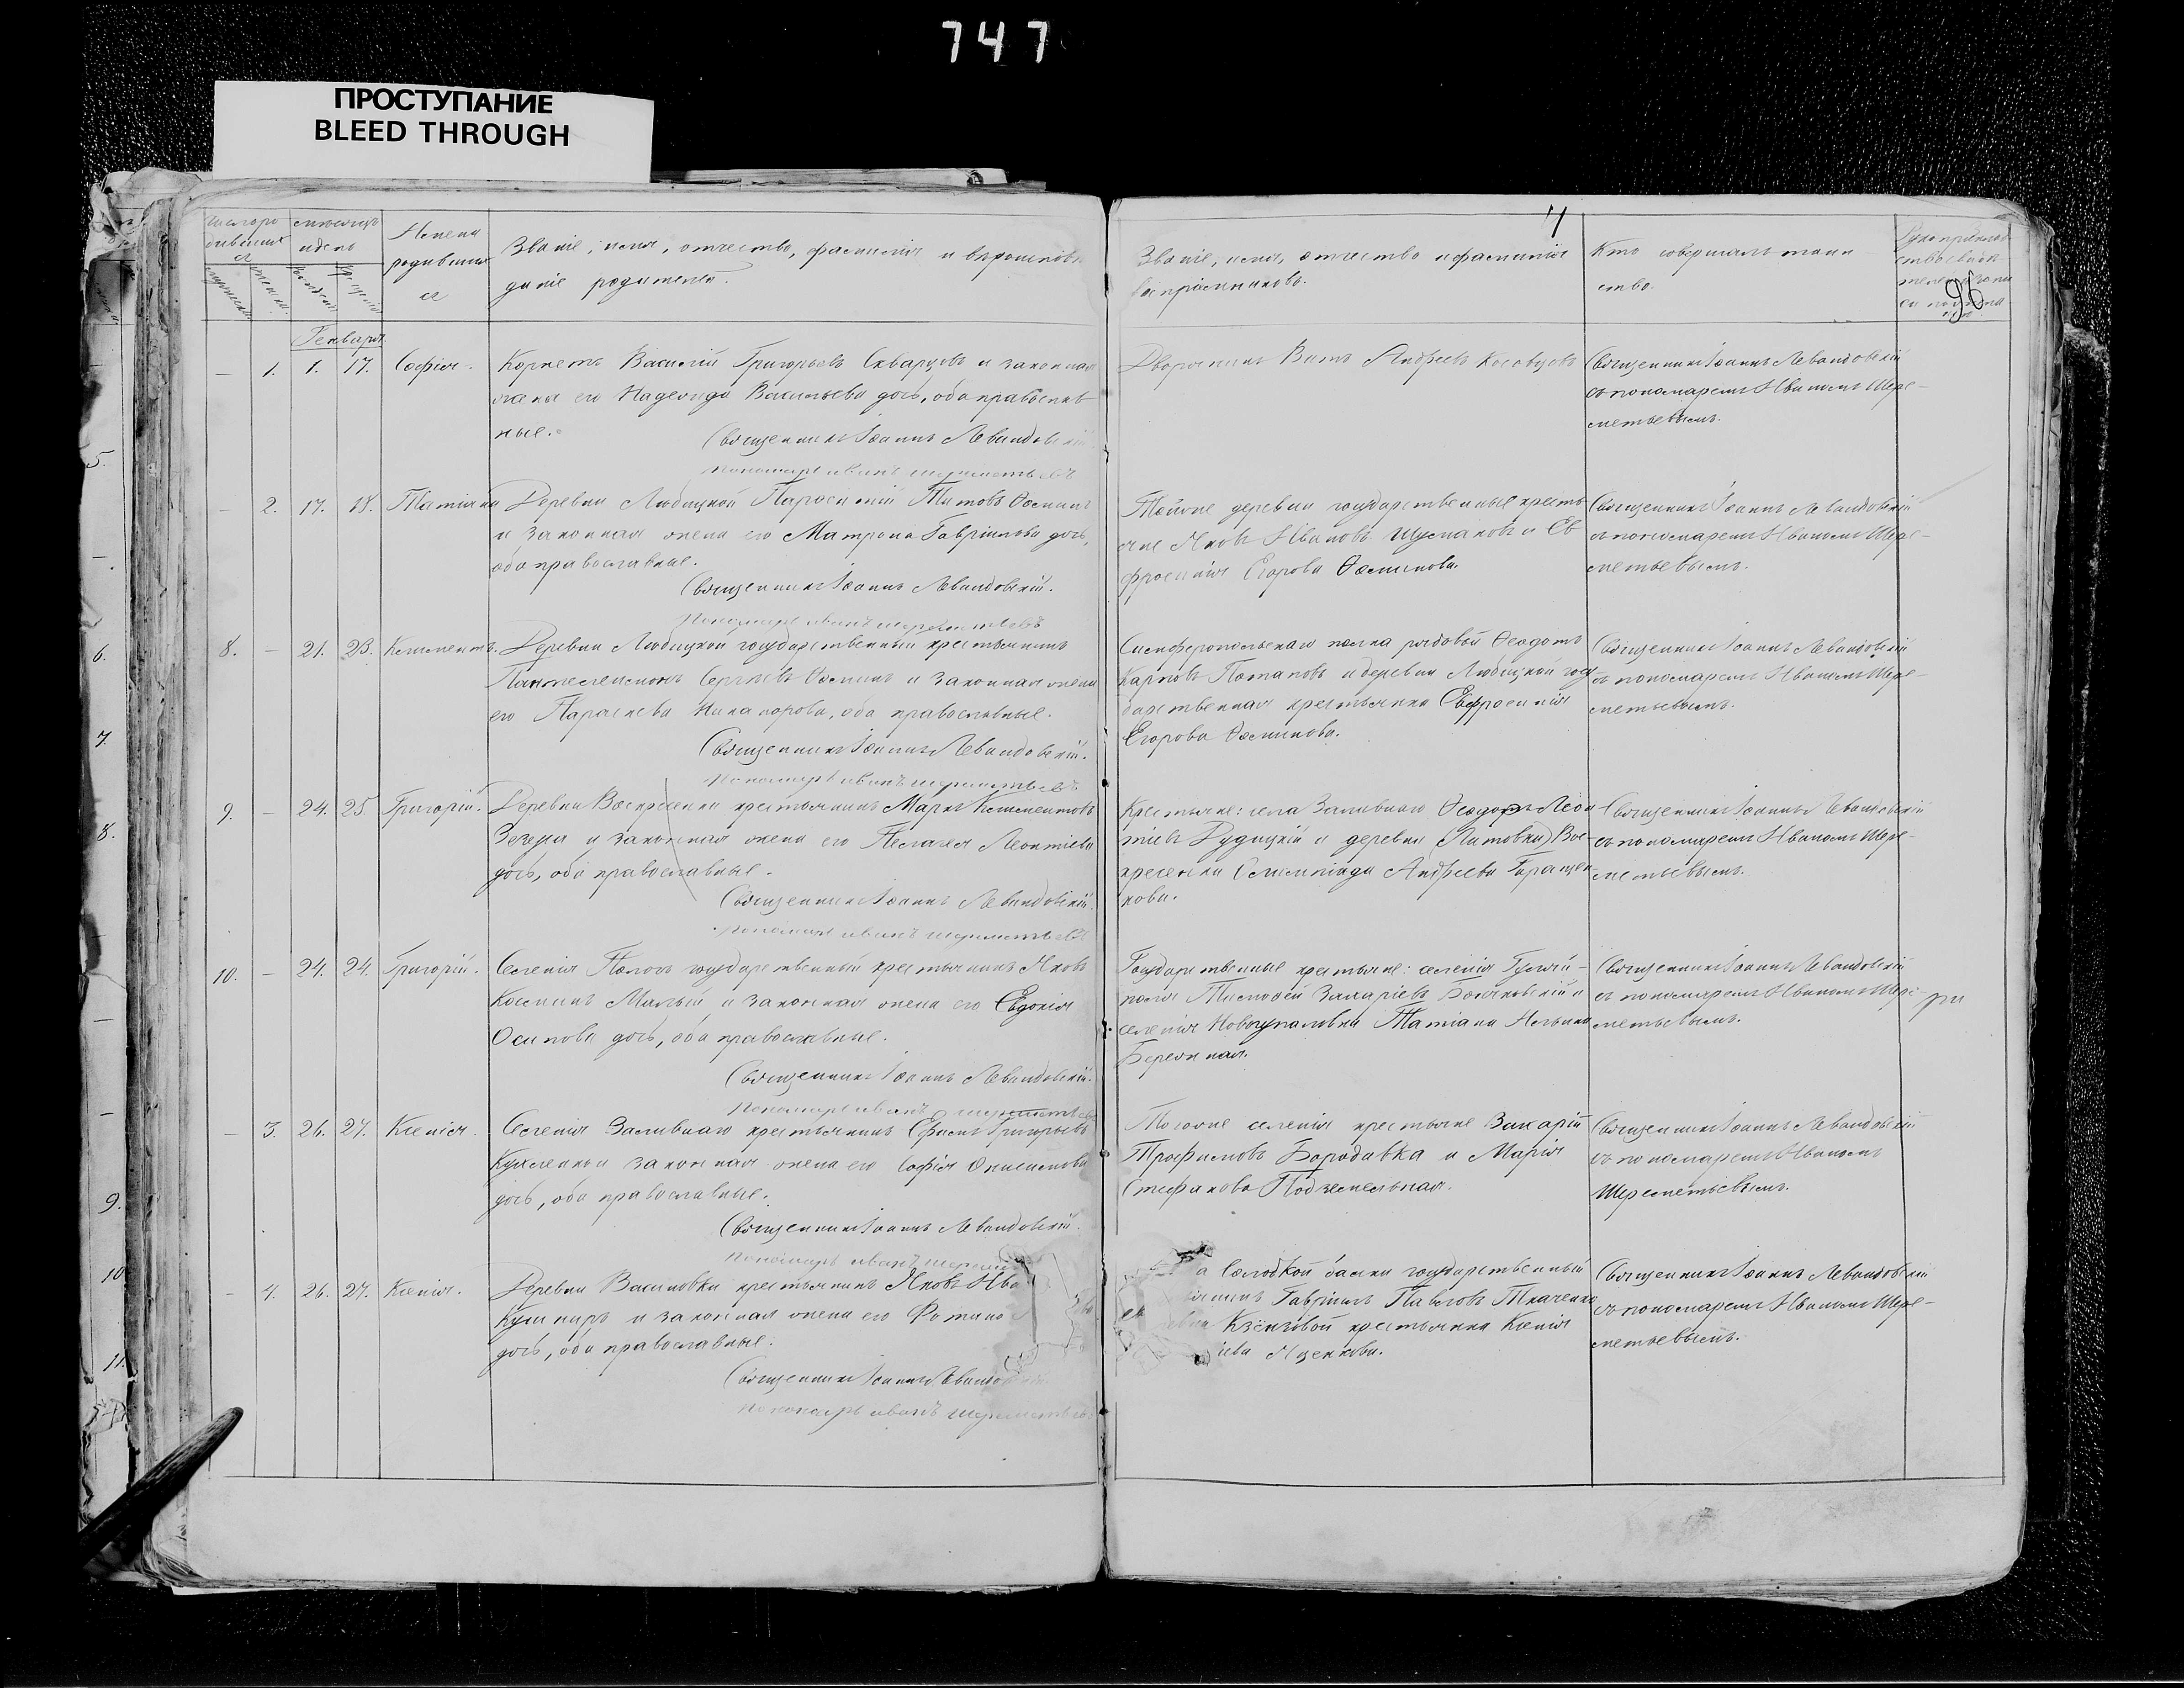 747
ПРОСТУПАНИЕ
BLEED THROUGH
4
96
мѣсяцъ
и день
Имена
родивших
ся
Званіе, имя, отчество, фамилія и вѣроисповѣ
даніе родителей.
Званіе, имя, отчество и фамилія
воспріемниковъ.
Кто совершалъ таин
ство.
Генваря
1. 1. 17. Софія.
Корнетъ Василій Григорьевъ Скварцовъ и законная
жена его Надежда Васильева дочь, оба православ
ные.
Священникъ Іоаннъ Левандовскій
Пономарь иванъ шереметьевъ
Дворянинъ Витъ Андреевъ Косовцовъ
Священникъ Іоаннъ Левандовскій
съ пономаремъ Иваномъ Шере-
метьевымъ.
2. 17. 18. Татіана
Деревни Любицкой Титовъ Ѳоминъ
и законная жена его Матрона Гавріилова дочь,
оба православные.
Священникъ Іоаннъ Левандовскій.
Пономарь иванъ шереметьевъ
Тойже деревни государственные кресть
яне Яковъ Ивановъ Шумаковъ и Ев
фросинія Егорова Ѳоминова.
Священникъ Іоаннъ Левандовскій
съ пономаремъ Иваномъ Шере-
метьевымъ.
8. – 21. 23. Климентъ.
Деревни Любицкой государственный крестьянинъ
Пантелеимонъ Сергѣевъ Ѳоминъ и законная жена
его Параскева Никанорова, оба православные.
Священникъ Іоаннъ Левандовскій.
Пономарь иванъ шереметьевъ
Симферопольскаго полка рядовой Ѳеодотъ
Карповъ Потаповъ и деревни Любицкой госу
дарственная крестьянка Евфросинія
Егорова Ѳоминова.
Священникъ Іоаннъ Левандовскій
съ пономаремъ Иваномъ Шере-
метьевымъ.
9. – 24. 25. Григорій.
Деревни Воскресенки крестьянинъ Маркъ Климентовъ
и законная жена его Пелагея Леонтіева
дочь, оба православные.
Священникъ Іоаннъ Левандовскій
Пономарь иванъ шереметьевъ
Крестьяне: села Заливнаго Ѳеодоръ Леон
тіевъ Рудицкій и деревни (Литовки) Вос-
кресенки Олимпіада Андреева Геращен
кова.
Священникъ Іоаннъ Левандовскій
съ пономаремъ Иваномъ Шере-
метьевымъ.
10. – 24. 24. Григорій.
Селенія Пологъ государственный крестьянинъ Яковъ
Косминъ Малый и законная жена его Евдокія
Осипова дочь, оба православные.
Священникъ Іоаннъ Левандовскій.
Пономарь иванъ шереметьевъ
Государственные крестьяне: селенія Гуляй-
поля Тимофей Захаріевъ и
селенія Новогупаловки Татіана Ильина
Бережная.
Священникъ Іоаннъ Левандовскій
съ пономаремъ Иваномъ Шере-
метьевымъ.
– 3. 26. 27. Ксенія.
Селенія Заливнаго крестьянинъ Ефимъ Григорьевъ
и законная жена его Софія Онисимова
дочь, оба православные.
Священникъ Іоаннъ Левандовскій.
Пономарь иванъ
Тогоже селенія крестьяне Захарій
Трофимовъ Бородавка и Марія
Стефанова Подземельная.
Священникъ Іоаннъ Левандовскій
съ пономаремъ Иваномъ
Шереметьевымъ.
– 4. 26. 27. Ксенія.
Деревни Васиновки крестьянинъ Яковъ Ива
Кушниръ и законная жена его
дочь, оба православные.
Священникъ Іоаннъ
Пономарь иванъ шереметьевъ
Солодкой балки государственный
Гавріилъ Павловъ Ткаченко
крестьянка Ксенія
Яценкова.
Священникъ Іоаннъ Левандовскій
съ пономаремъ Иваномъ Шере-
метьевымъ.